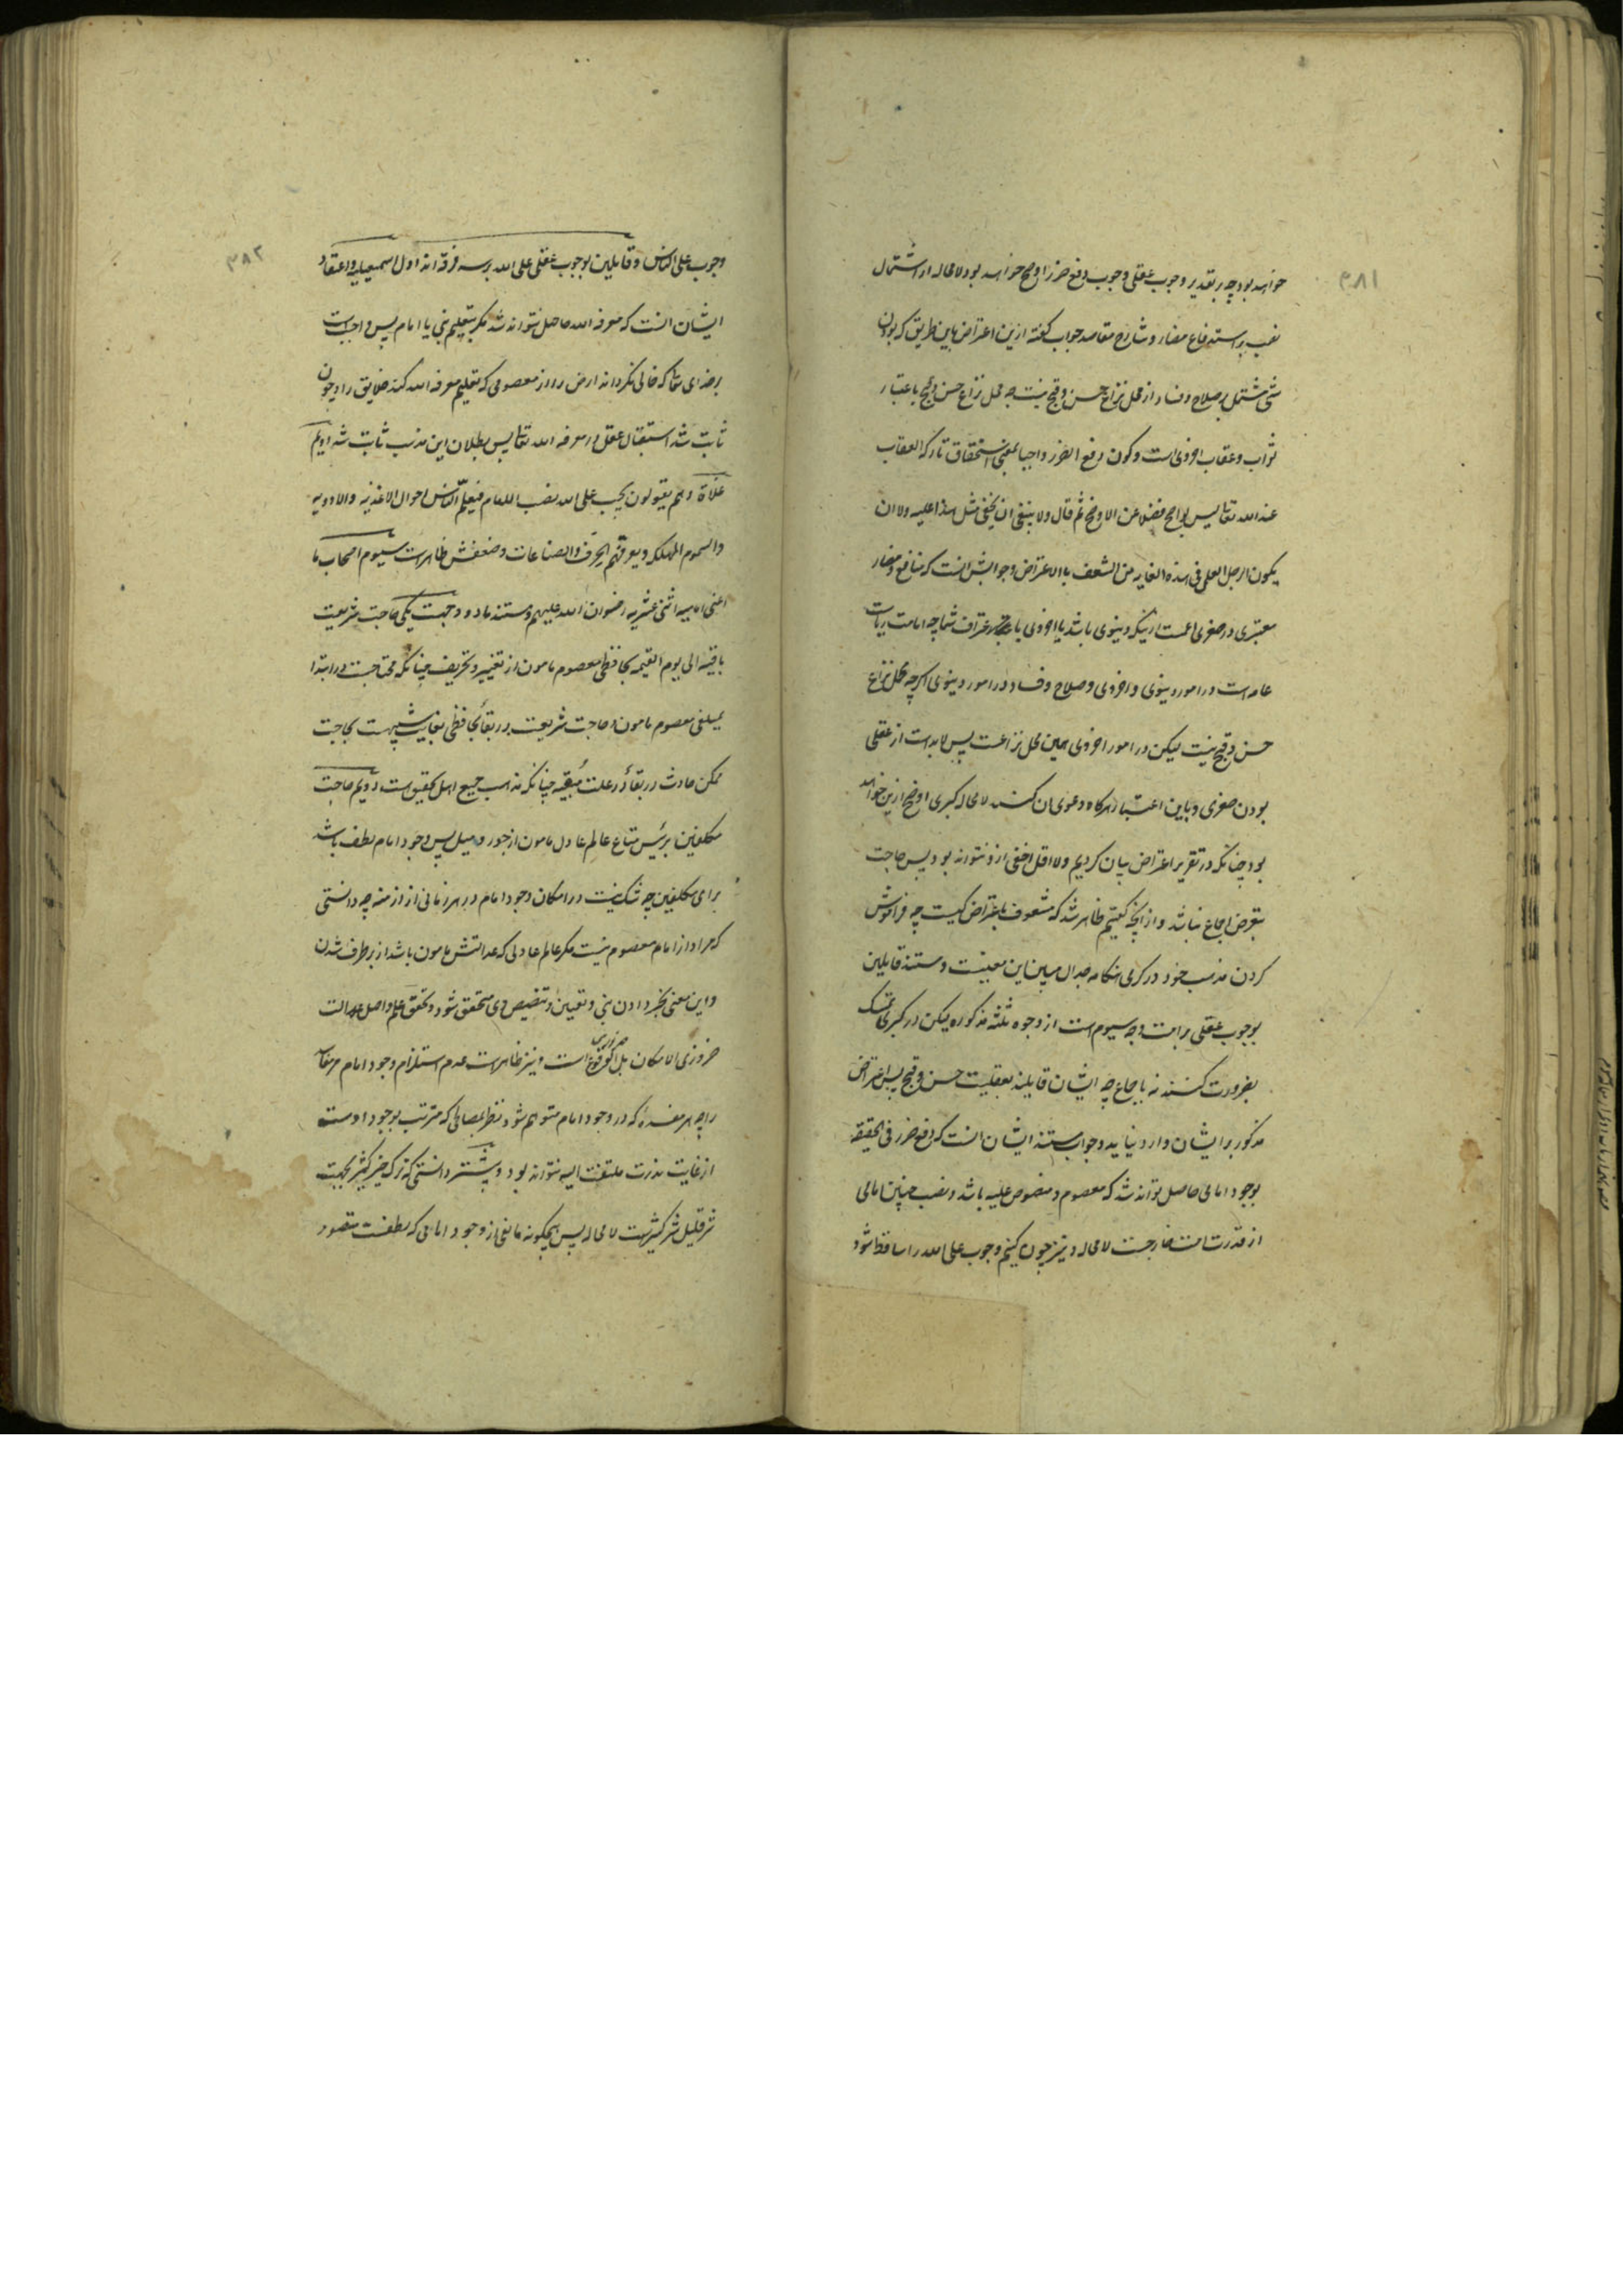 ۳۸۱
خواهد بود چه بر تقدیر وجوب عقلی وجوب دفع ضرر اوضح خواهد بود لا محاله از اشتمال
نصب بر استدفاع مضار و شارح مقاصد جواب گفته ازین اعتراض باین طریق که بودن
شی مشتمل بر صلاح و فساد از محل نزاع حسن و قبح نیست چه محل نزاع حسن و قبح باعتبار
ثواب و عقاب اخروی است و کون دفع الضرر واجبا بمعنی استحقاق تارکه العقاب
عند الله تعالی لیس بواضح فضلا عن الاوضح ثم قال ولا ینبغی ان یخفی مثل هذا علیه ولا ان
یکون الرجل العلمی فی هذه الغایه من الشعف بالاعتراض و جوابش انست که منافع و مضار
معتبری در صغری اعمست ازینکه دنیوی باشد یا اخروی باعتراف شما چه امامت ریاست
عامه است در امور دینوی و اخروی و صلاح و فساد در امور دینوی اگرچه محل نزاع
حسن و قبح نیست لیکن در امور اخروی همین محل نزاعست پس لابد است از عقلی
بودن صغری و باین اعتبار هرگاه دعوی ان کنند لا محاله کبری اوضح ازین خواهد
بود چنانکه در تقریر اعتراض بیان کردیم ولا اقل اخفی ازو نتواند بود پس حاجت
بتعرض اجماع نباشد و از آنچه گفتیم ظاهر شد که مشعوف باعتراض کیست چه فراموش
کردن مذهب خود در گرمی هنگامه جدال مبین این معنیست و مستند قایلین
بوجوب عقلی بر امت وجه سیوم است از وجوه ثلثه مذکوره لیکن در کبری تمسک
بضرورت کنند نه باجماع چه ایشان قایلند بعقلیت حسن و قبح پس اعتراض
مذکور بر ایشان وارد نیاید و جواب مستند ایشان انست که دفع ضرر فی الحقیقه
بوجود امامی حاصل تواند شد که معصوم و منصوص علیه باشد و نصب چنین امامی
از قدرت امت خارجست لا محاله و نیز چون گفتیم وجوب علی الله را ساقط شود
۳۸۲
وجوب علی الناس و قایلین بوجوب عقلی علی الله بر سه فرقه اند اول اسمعیلیه و اعتقاد
ایشان انست که معرفه الله حاصل نتواند شد مگر بتعلیم نبی یا امام پس واجبست
بر خدای تعالی که خالی نگرداند ارض را از معصومی که تعلیم معرفه الله کند خلایق را و چون
ثابت شد استقلال عقل در معرفه الله تعالی پس بطلان این مذهب ثابت شد دویم
غلاة و هم یقولون یجب علی الله نصب الامام فیعلم الناس احوال الاغذیه والادویه
والسموم المهلکه و یعرفهم الحرف والصناعات و ضعفش ظاهرست سیوم اصحاب ما
اعنی امامیه اثنی عشریه رضوان الله علیهم و مستند ما دو وجهست یکی حاجت شریعت
باقیه الی یوم القیمه بحافظی معصوم مامون از تغییر و تحریف چنانکه محتاجست در ابتدا
بمبلغی معصوم مامون و حاجت شریعت در بقا بحافظی بغایت شبیهست بحاجت
ممکن حادث در بقا در علت مبقیه چنانکه مذهب جمیع اهل تحقیق است دویم حاجت
مکلفین برئیس متاع عالم عادل مامون از جور و میل پس وجود امام لطف باشد
برای مکلفین چه شک نیست در امکان وجود امام در هر زمانی از ازمنه چه دانستی
که مراد از امام معصوم نیست مگر عالم عادلی که عدالتش مامون باشد از برطرف شدن
و این معنی بخبر دادن نبی و تعیین و تنصیص وی متحقق شود و تحقق علم و اصل عدالت
ضروری الامکان بل ضروری الوقوع است و نیز ظاهرست عدم استلزام وجود امام مر مفاسد
را چه هر مفسده که در وجود امام متوهم شود نظر بمصالحی که مترتب بوجود اوست
از غایت ندرت ملتفت الیه نتواند بود و پیشتر دانستی که ترک خیر کثیر بجهت
شر قلیل شر کثیرست لا محاله پس هیچگونه مانعی از وجود امامی که لطفست متصور